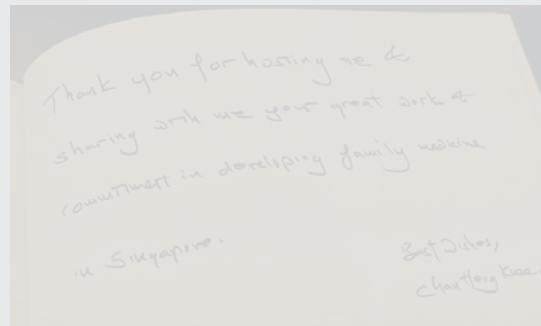 Thank you for hosting me &
sharing with me your great work &
commitment in developing family medicine
in Singapore.
Best Wishes,
Chan Heng Kee.